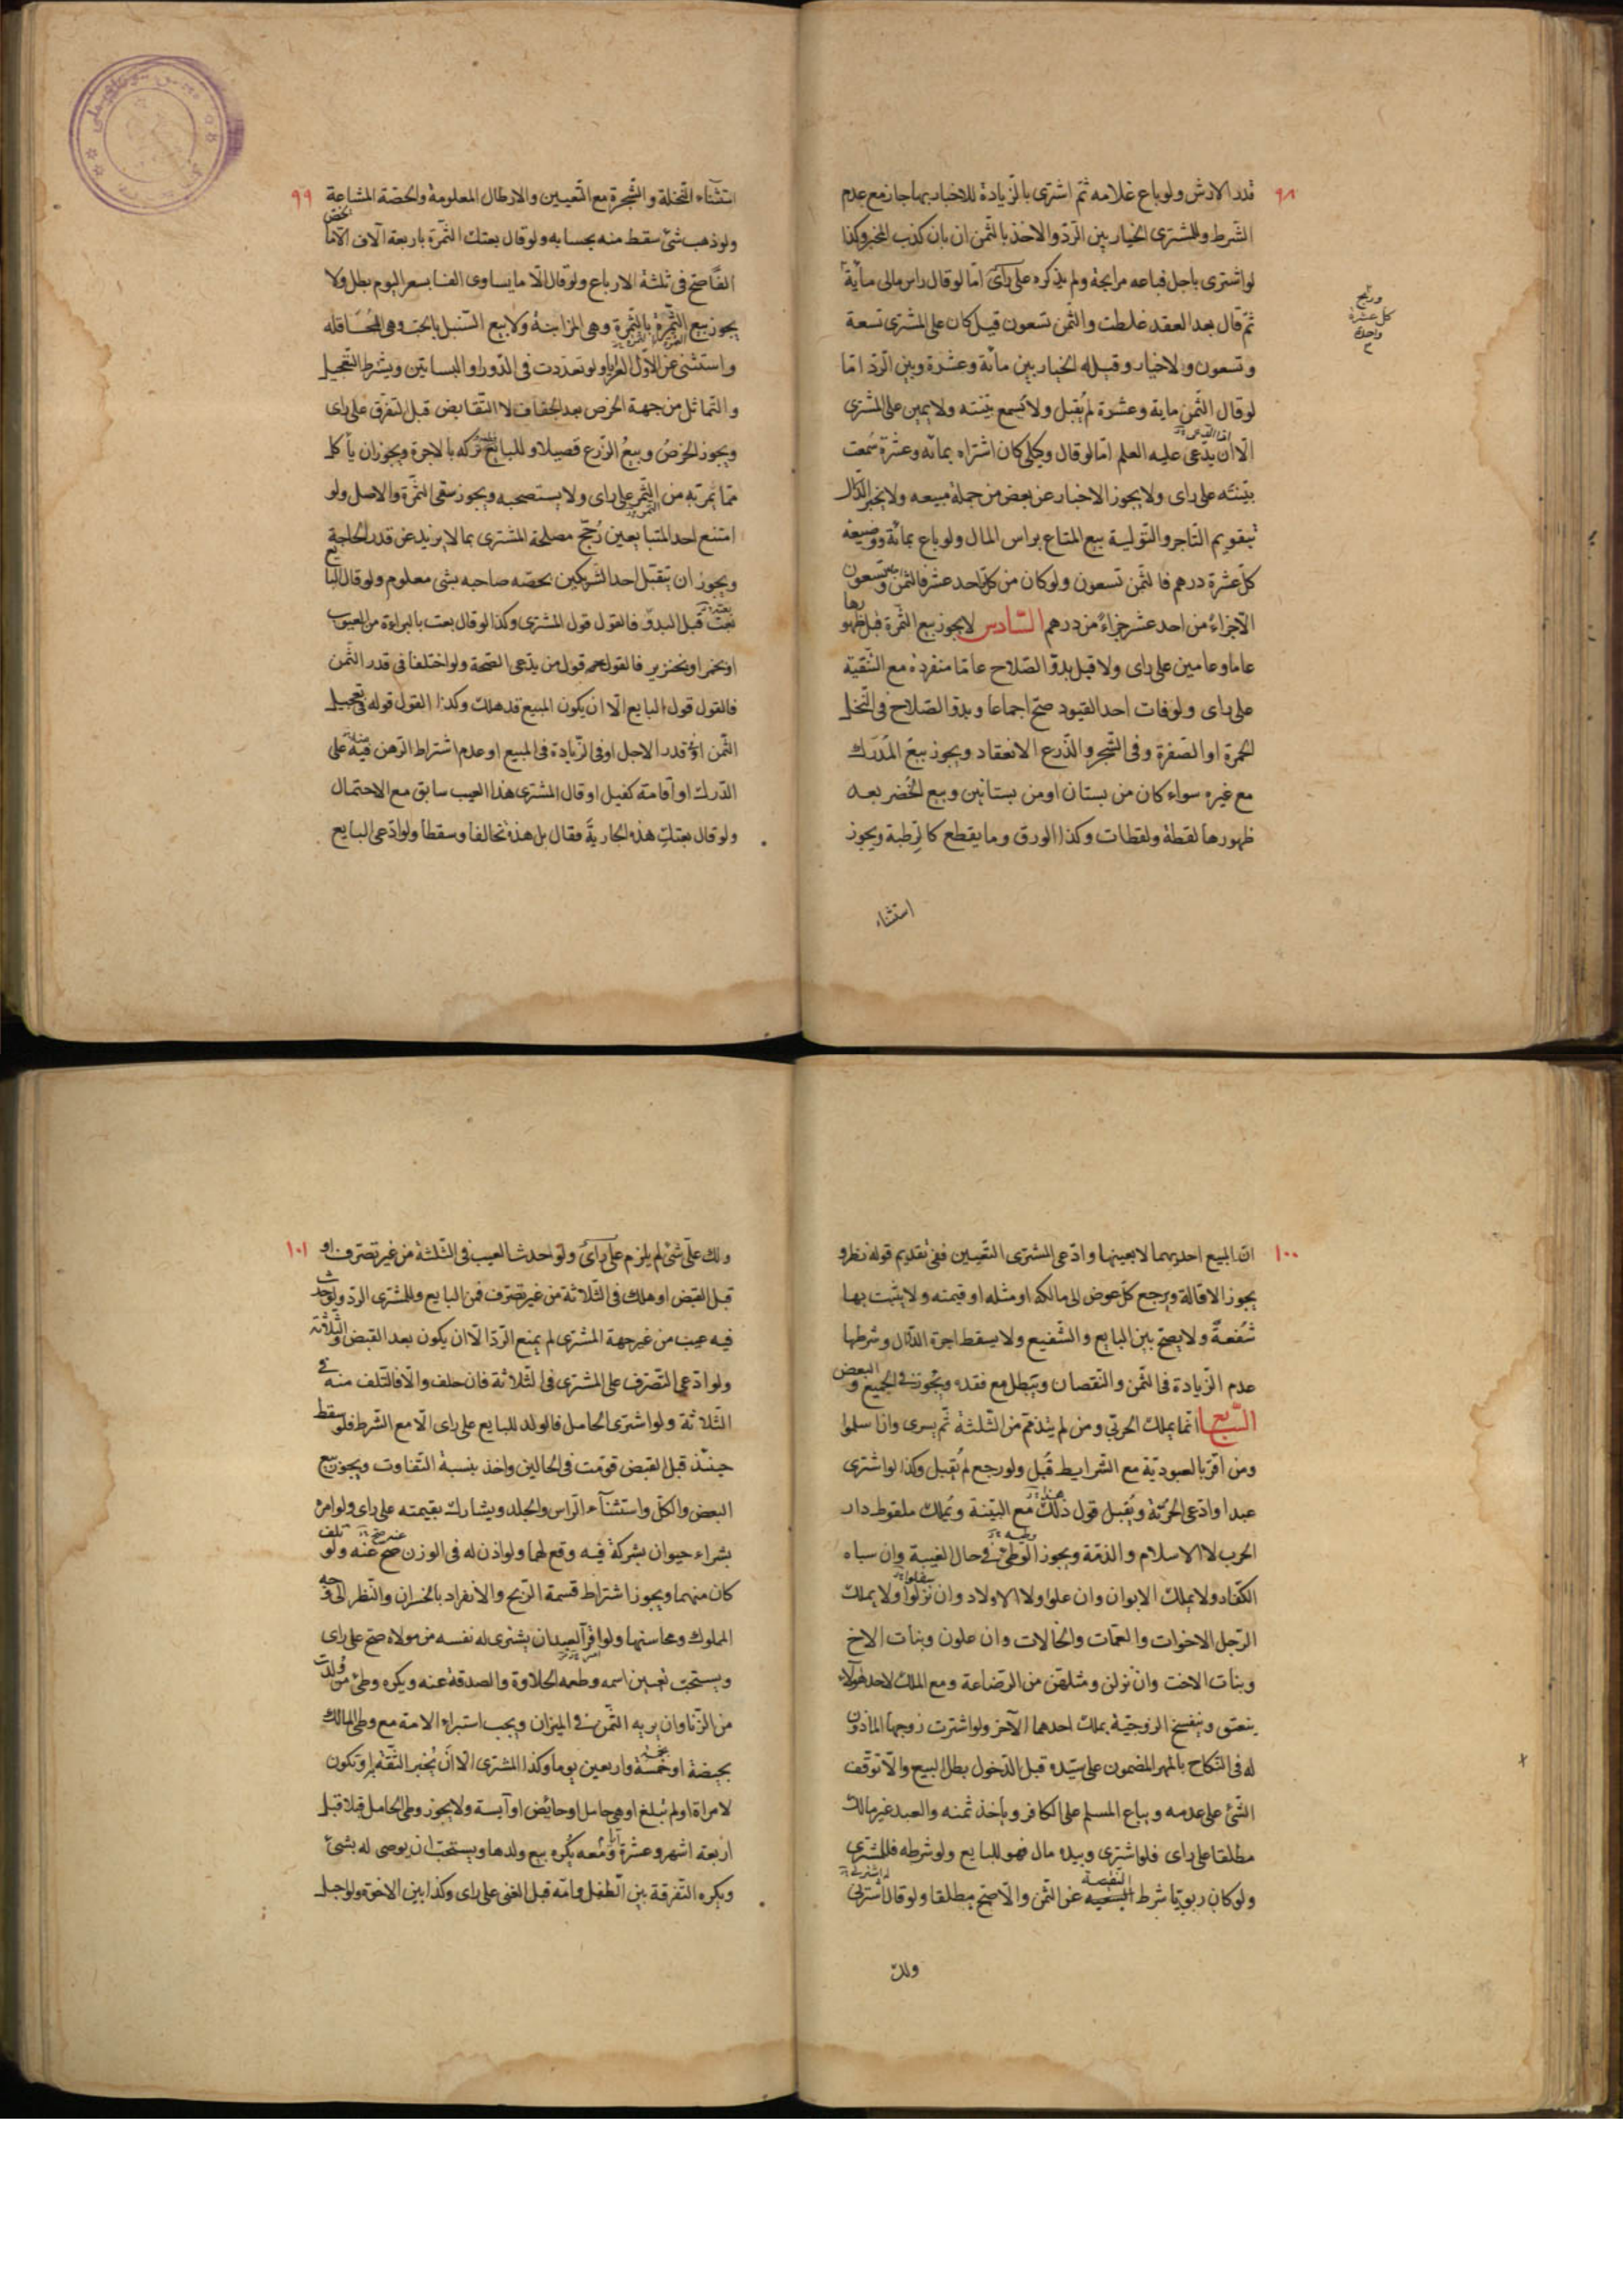 ٩٨
قدر الارش ولو باع غلامه ثمّ اشترى بالزّيادة للاخبار بها جاز مع عدم
الشّرط وللمشترى الخيار بين الرّدّ والاخذ بالثّمن ان بان كذب المخبر وكذا
لو اشترى باجل فباعه مرابحة ولم يذكره على رأى امّا لو قال راس مالى مأية
وربح
كل عشرة
واحدة
ثمّ قال بعد العقد غلطت والثّمن تسعون قيل كان على المشترى تسعة
وتسعون ولاخيار وقيل له الخيار بين مائة وعشرة وبين الرّدّ امّا
لو قال الثّمن ماية وعشرة لم يُقبل ولا تُسمع بيّنته ولا يمين على المشترى
الّا ان يدّعى عليه العلم امّا لو قال وكيلى كان اشتراه بمائة وعشرة سُمعت
بيّنته على راى ولا يجوز الاخبار عن بعض من جملة مبيعه ولا يخبر الدّلال
بتقويم التّاجر والتّولية بيع المتاع براس المال ولو باع بمائة ووضيعة
كلّ عشرة درهم فالثّمن تسعون ولو كان من كلّ احد عشر فالثّمن وتسعون
الّا جزاءً من احد عشر جزاءً من درهم السّادس لا يجوز بيع الثّمرة قبل ظهورها
عاما وعامين على راى ولا قبل بدوّ الصّلاح عاما منفردة مع التّبقية
على راى ولو فات احد القيود صحّ اجماعا وبدوّ الصّلاح فى النّخل
الحمرة او الصّفرة وفى الشّجر والزّرع الانعقاد ويجوز بيع المُدرَك
مع غيره سواء كان من بستان او من بستانين وبيع الخُضر بعد
ظهورها لقطة ولقطات وكذا الورق وما يقطع كالرّطبة ويجوز
استثناء
٩٩
استثناء النّخلة والشّجرة مع التّعيين والارطال المعلومة والحصّة المشاعة
ولو ذهب شئ سقط منه بحسابه ولو قال بعتك الثّمرة باربعة آلاف الّا ما يخصّ
الفًا صحّ فى ثلثة الارباع ولو قال الّا ما يساوى الفا بسعر اليوم بطل ولا
يجوز بيع الثّمرة بالثّمرة وهى المزابنة ولا بيع السّنبل بالحبّ وهى المُحاقلة
واستثنى عن الاوّل العرايا ولو تعدّدت فى الدّور او البساتين ويشرط التّعجيل
والتّماثل من جهة الخرص بعد الجفاف لا التّقابض قبل التّفرّق على راى
ويجوز الخرصُ وبيعُ الزّرع قصيلا وللبايع تركه بالاجرة ويجوز ان يأكل
ممّا يمرّ به من الثّمر على راى ولا يستصحبه ويجوز سقى الثّمرة والاصل ولو
امتنع احد المتبايعين رُجّح مصلحة المشترى بما لا يزيد عن قدر الحاجة
ويجوز ان يتقبّل احد الشّريكين بحصّه صاحبه بشئ معلوم ولو قال البايع
بعت قبل البدوّ فالقول قول المشترى وكذا لو قال بعت بالبراءة من العيوب
او بخمر او بخنزير فالقول قول من يدّعى الصّحة ولو اختلفا فى قدر الثّمن
فالقول قول البايع الّا ان يكون المبيع قد هلك وكذا القول قوله فى تعجيل
الثّمن او قدر الاجل او فى الزّيادة فى المبيع او عدم اشتراط الرّهن فيه على
الدّرك او اقامة كفيل او قال المشترى هذا العيب سابق مع الاحتمال
ولو قال بعتك هذه الجارية فقال بل هذه تحالفا وسقطا ولو ادّعى البايع
١٠٠
انّ المبيع احديهما لا بعينها وادّعى المشترى التّعيين ففى تقديم قوله نظر و
يجوز الاقالة ويرجع كلّ عوض الى مالكه او مثله او قيمته ولا يثبت بها
شُفعةٌ ولا يصحّ بين البايع والشّفيع ولا يسقط اجرة الدّلّال وشرطها
عدم الزّيادة فى الثّمن والنّقصان وتبطل مع فقده وتجوز فى الجميع والبعض
السّابع انّما يملك الحربّى ومن لم يتذمّم من الثّلثة ثمّ يسرى واذا سلموا
ومن اقرّ بالعبوديّة مع الشّرايط قُبل ولو رجع لم يُقبل وكذا لو اشترى
عبدا وادّعى الحرّيّة ويُقبل قول ذلك مع البيّنة ويُملك ملقوط دار
الحرب لا الاسلام والذمّة ويجوز الوطئ فى حال الغيبة وان سباه
الكفّار ولا يملك الابوان وان علوا ولا الاولاد وان نزلوا ولا يملك
الرّجل الاخوات والعمّات والخالات وان علون وبنات الاخ
وبنات الاخت وان نزلن ومثلهنّ من الرّضاعة ومع الملك لاحد هؤلاء
ينعتق وينفسخ الزوجيّة بملك احدهما الآخر ولو اشترت زوجها الماذون
له فى النّكاح بالمهر المضمون على سيّده قبل الدّخول بطل البيع والّا توقّف
الشّئ على عدمه ويباع المسلم على الكافر وياخذ ثمنه والعبد غير مالك
مطلقا على راى فلو اشترى وبيده مال فهو للبايع ولو شرطه فللمشترى
ولو كان ربويّا شرط النّقيصة عن الثّمن والّا صحّ مطلقا ولو قال اشترنى
ولك
١٠١
ولك علّى شئ لم يلزم على رأى ولو احدث العيب فى الثّلثة من غير تصرّف او
قبل القبض او هلك فى الثّلاثة من غير تصرّف فمن البايع وللمشترى الردّ ولو حدث
فيه عيب من غير جهة المشترى لم يمنع الرّدّ الّا ان يكون بعد القبض والثّلاثة
ولو ادّعى التّصرّف على المشترى فى الثّلاثة فان حلف والّا فالتّلف منه فى
الثّلاثة ولو اشترى الحامل فالولد للبايع على راى الّا مع الشّرط فلو سقط
حينئذ قبل القبض قوّمت فى الحالين واخذ بنسبة التّفاوت ويجوز بيع
البعض والكلّ واستثنآء الرّاس والجلد ويشارك بقيمته على راى ولو امره
بشراء حيوان بشركة فيه وقع لهما ولو اذن له فى الوزن صحّ عنه ولو تلف
كان منهما ويجوز اشتراط قسمة الرّبح والانفراد بالخسران والنّظر الى وجه
المملوك ومحاسنها ولو امر العبد ان يشترى له نفسه من مولاه صحّ على راى
ويستحبّ تغيير اسمه وطعمه الحلاوة والصدقة عنه ويكره وطئ من ولدت
من الزّنا وان يريه الثّمن فى الميزان ويجب استبراء الامة مع وطى المالك
بحيضة او خمسة واربعين يوما وكذا المشترى الّا ان يُخبر الثّقة او تكون
لامراة او لم تبلغ او هى حامل او حائض او آيسة ولا يجوز وطى الحامل قبلا قبل
اربعة اشهر وعشرة ومعه يكره بيع ولدها ويستحبّ ان يوصى له بشئ
ويكره التّفرقة بين الطّفل وامّه قبل الغنى على راى وكذا بين الاخوة ولو احبل